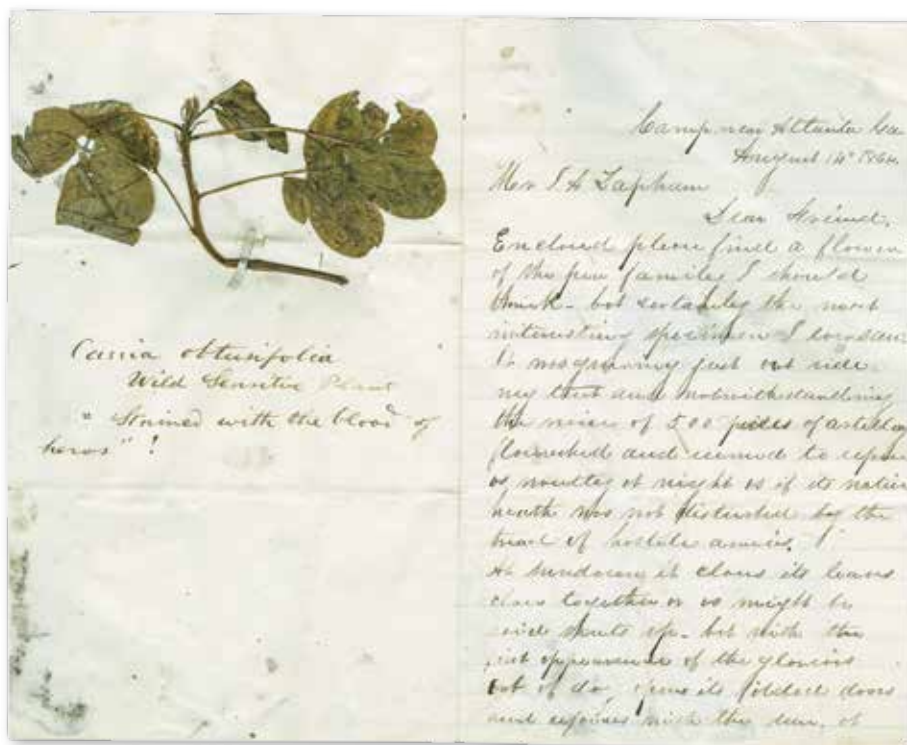 Cassia obtusifolia
Wild Sensitive Plant
" Stained with the blood of
heros" !
Camp near Atlanta Ga
August 14th 1864
Mr I A Lapham
Dear Friend,
Enclosed please find a flower
of the pea family I should
think - but certainly the most
interesting specimen I ever saw.
It was growing just out side
my tent and notwithstanding
the noise of 500 pieces of artillery
flourished and seemed to repose
as sweetly at night as if its native
heath was not disturbed by the
tread of hostile armies.
At sundown it closes its leaves
close together or as might be
said shuts up - but with the
appearance of the glorious
of day opens its folded doors
and rejoices with the sun, at